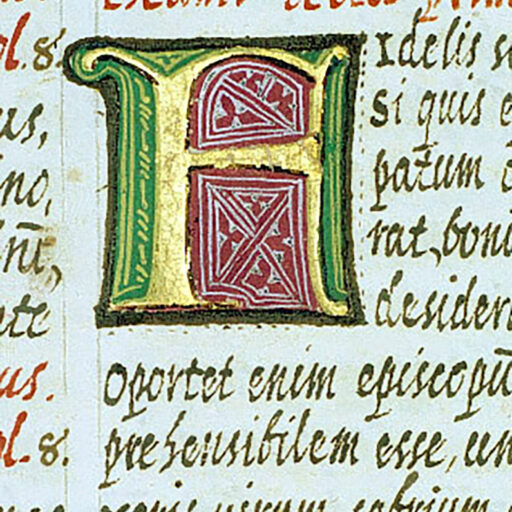 ol. 8.
us,
no,
nt̄,
nte
us.
ol. 8.
FIdelis s
Si quis e
patum
rat, bon
desider
oportet enim episcopū
prehensibilem esse, un
uirum